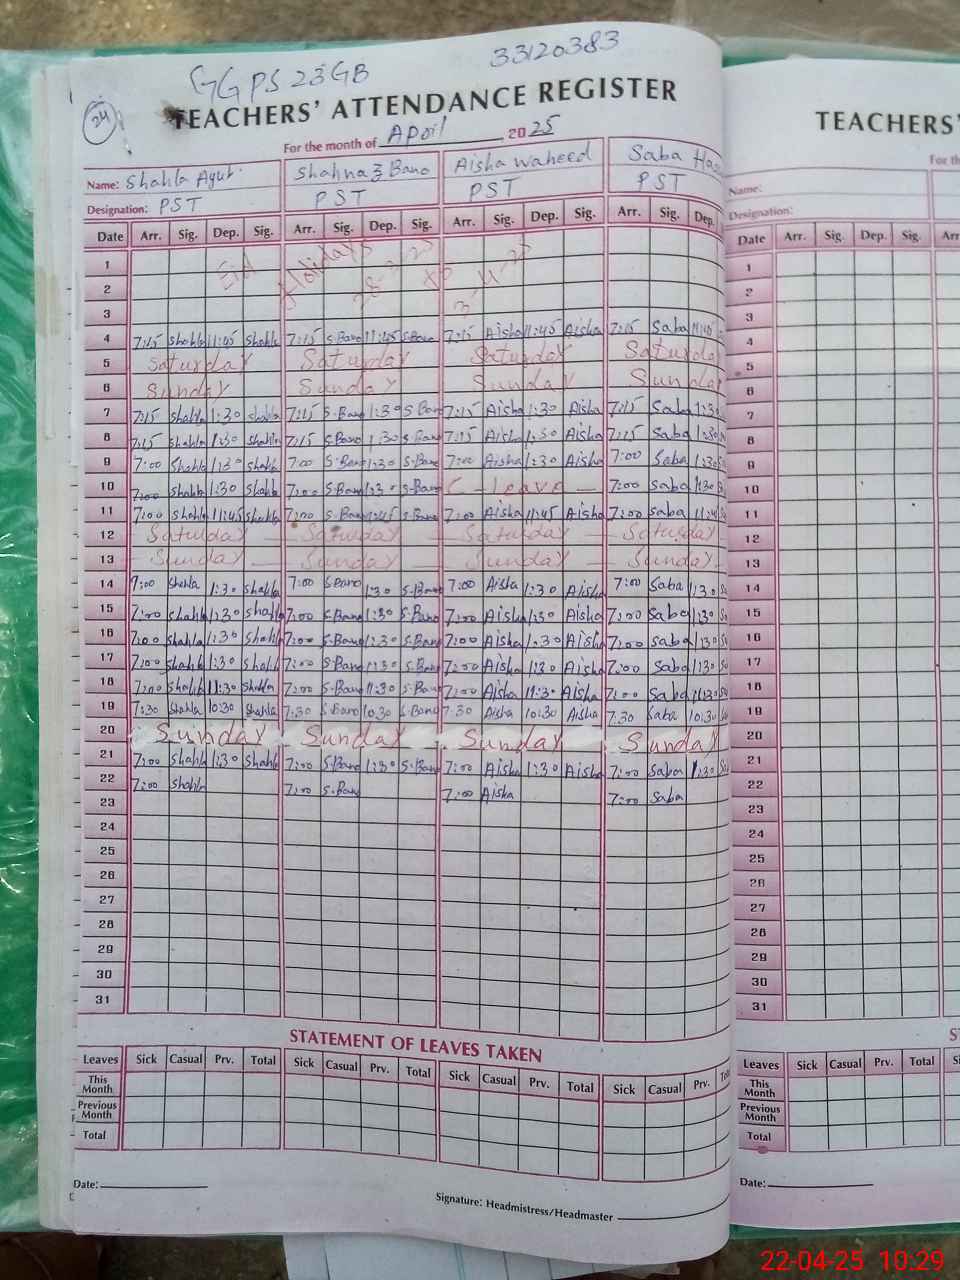 24
GGPS 23 GB 33120383
TEACHERS' ATTENDANCE REGISTER
For the month of April 2025
Name: Shahla Ayub Shahnaz Bano Aisha Waheed Saba
Designation: PST PST PST PST
Date Arr. Sig. Dep. Sig. Arr. Sig. Dep. Sig. Arr. Sig. Dep. Sig. Arr. Sig. Dep.
1 Eid Holidays
2
3
4 7:15 Shahla 11:45 Shahla 7:15 S.Bano 11:45 S.Bano 7:15 Aisha 11:45 Aisha 7:15 Saba 11:45
5 Saturday Saturday Saturday Saturday
6 Sunday Sunday Sunday Sunday
7 7:15 Shahla 1:30 Shahla 7:15 S.Bano 1:30 S Bano 7:15 Aisha 1:30 Aisha 7:15 Saba 1:30
8 7:15 Shahla 1:30 Shahla 7:15 S.Bano 1:30 S Bano 7:15 Aisha 1:30 Aisha 7:15 Saba 1:30
9 7:00 Shahla 1:30 Shahla 7:00 S.Bano 1:30 S.Bano 7:00 Aisha 1:30 Aisha 7:00 Saba 1:30
10 7:00 Shahla 1:30 Shahla 7:00 S.Bano 1:30 S.Bano C - leave - 7:00 Saba 1:30
11 7:00 Shahla 11:45 Shahla 7:00 S.Bano 11:45 S.Bano 7:00 Aisha 11:45 Aisha 7:00 Saba 11:45
12 Saturday - Saturday - Saturday - Saturday
13 Sunday - Sunday - Sunday - Sunday
14 7:00 Shahla 1:30 Shahla 7:00 S.Bano 1:30 S.Bano 7:00 Aisha 1:30 Aisha 7:00 Saba 1:30
15 7:00 Shahla 1:30 Shahla 7:00 S.Bano 1:30 S.Bano 7:00 Aisha 1:30 Aisha 7:00 Saba 1:30
16 7:00 Shahla 1:30 Shahla 7:00 S.Bano 1:30 S.Bano 7:00 Aisha 1:30 Aisha 7:00 Saba 1:30
17 7:00 Shahla 1:30 Shahla 7:00 S.Bano 1:30 S.Bano 7:00 Aisha 1:30 Aisha 7:00 Saba 1:30
18 7:00 Shahla 11:30 Shahla 7:00 S.Bano 11:30 S.Bano 7:00 Aisha 11:30 Aisha 7:00 Saba 11:30
19 7:30 Shahla 10:30 Shahla 7:30 S.Bano 10:30 S.Bano 7:30 Aisha 10:30 Aisha 7:30 Saba 10:30
20 Sunday Sunday Sunday Sunday
21 7:00 Shahla 1:30 Shahla 7:00 S.Bano 1:30 S.Bano 7:00 Aisha 1:30 Aisha 7:00 Saba 1:30
22 7:00 Shahla 7:00 S.Bano 7:00 Aisha 7:00 Saba
23
24
25
26
27
28
29
30
31
STATEMENT OF LEAVES TAKEN
Leaves Sick Casual Prv. Total Sick Casual Prv. Total Sick Casual Prv. Total Sick Casual Prv.
This Month
Previous Month
Total
Date:
Signature: Headmistress/Headmaster
TEACHERS'
For th
Name:
Designation:
Date Arr. Sig. Dep. Sig. Arr
1
2
3
4
5
6
7
8
9
10
11
12
13
14
15
16
17
18
19
20
21
22
23
24
25
26
27
28
29
30
31
Leaves Sick Casual Prv. Total
This Month
Previous Month
Total
Date:
22-04-25 10:29